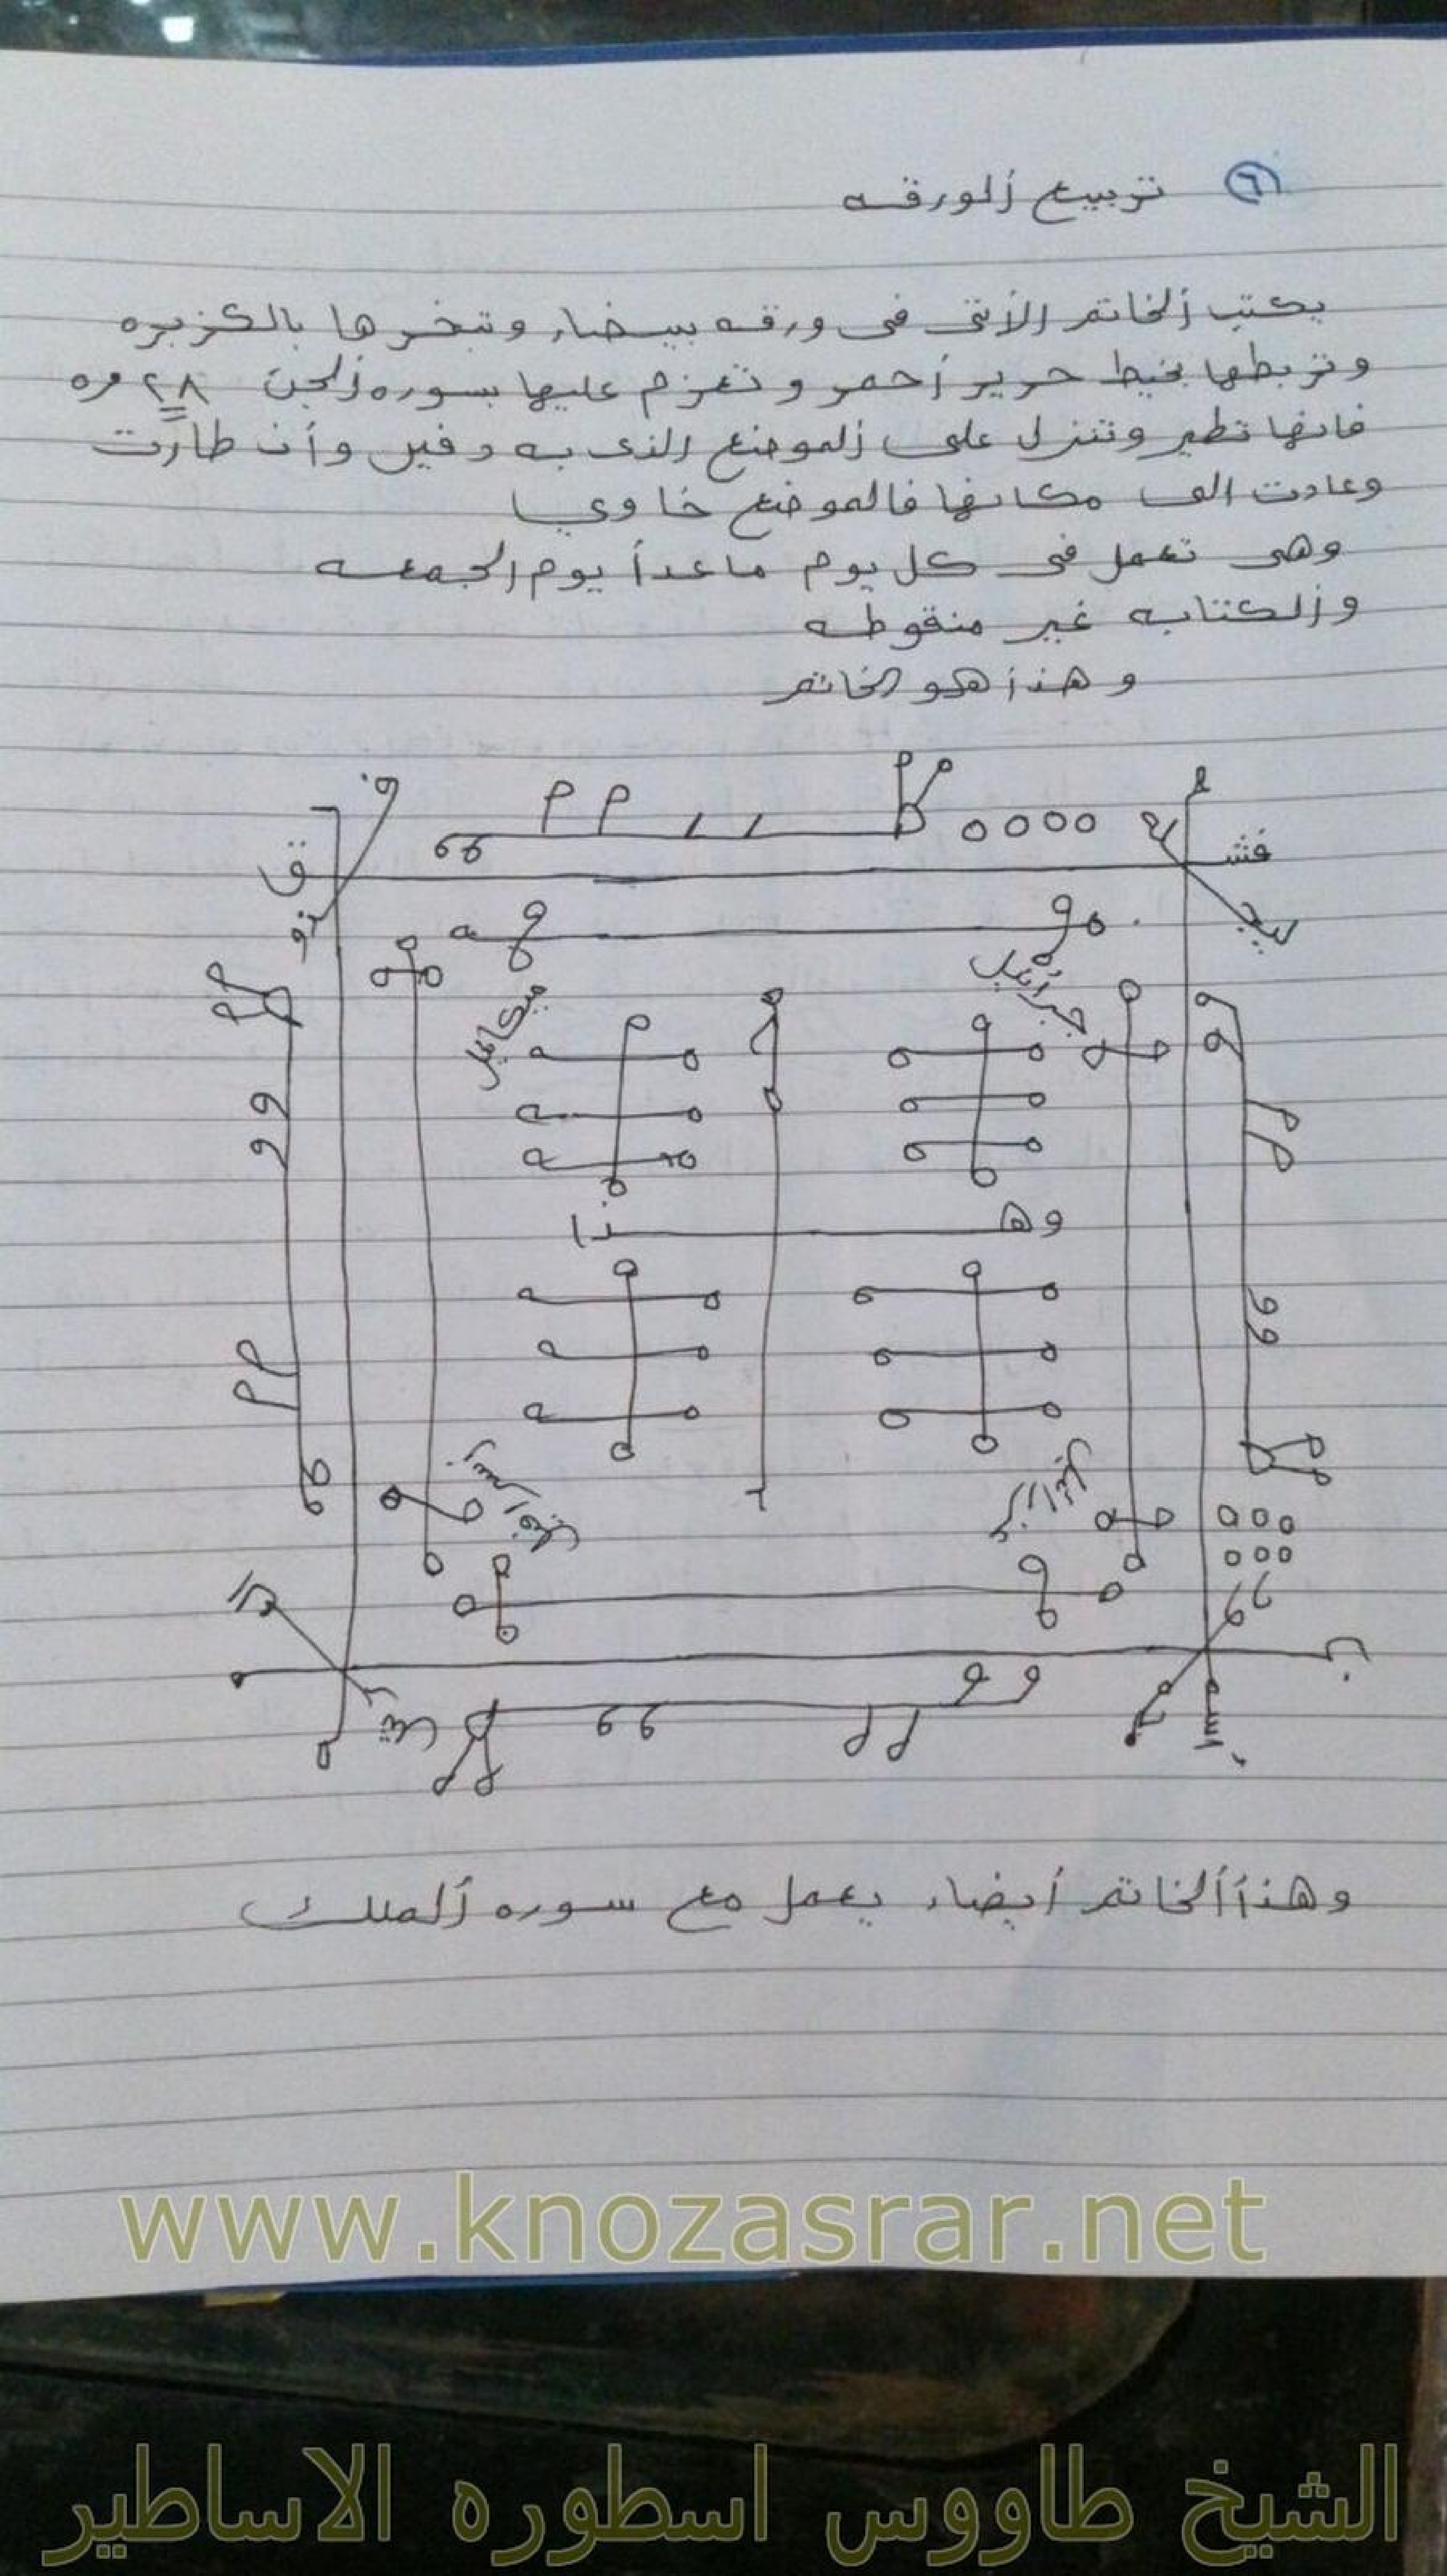 ٦ تربيع ألورقه
يكتب ألخاتم الأتى فى ورقه بيضاء وتبخرها بالكزبره
وتربطها بخيط حرير أحمر وتعزم عليها بسوره ألجن ٢٨ مره
فانها تطير وتنزل على ألموضع الذى به دفين وأن طارت
وعادت الى مكانها فالموضع خاوي
وهى تعمل فى كل يوم ماعدأ يوم الجمعه
وألكتابه غير منقوطه
وهذأ هو الخاتم
فش
ق
جبرائيل
ميكائيل
وهذا
عزرائيل
وهذأ ألخاتم أيضاء يعمل مع سوره ألملك
www.knozasrar.net
الشيخ طاووس اسطوره الاساطير